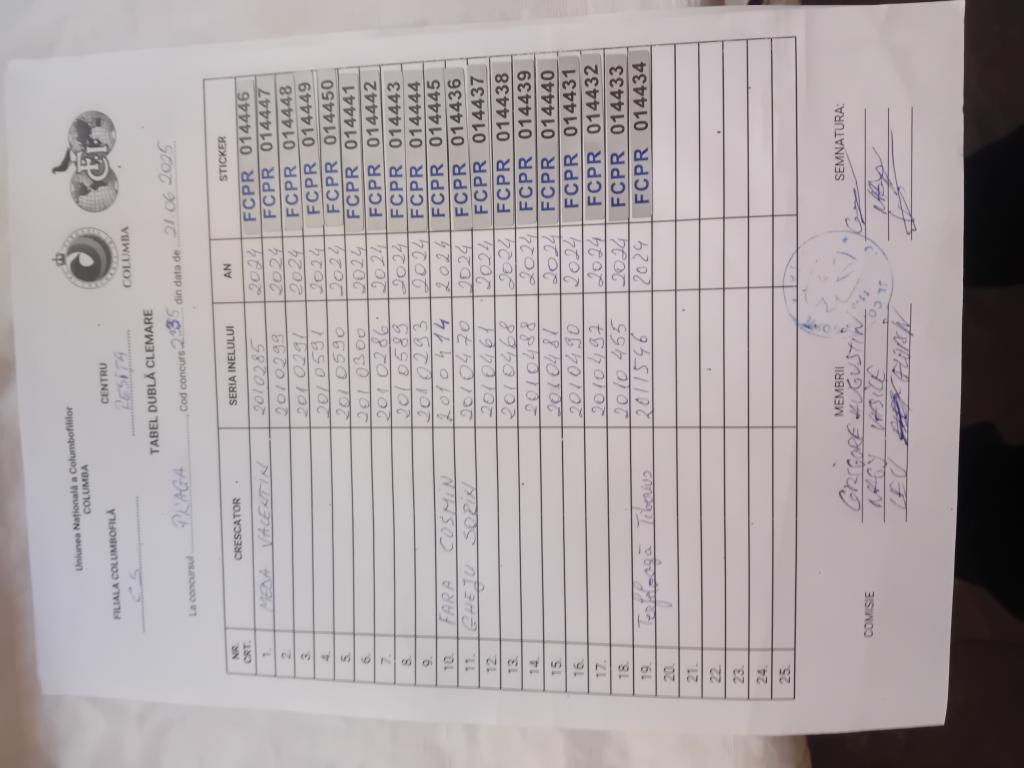 Uniunea Națională a Columbofililor
COLUMBA
COLUMBA
FILIALA COLUMBOFILĂ CENTRU
CS REȘIȚA
TABEL DUBLĂ CLEMARE
La concursul PRAGA Cod concurs din data de 21.06.2025
NR. CRT. CRESCATOR SERIA INELULUI AN STICKER
1. MEDA VALENTIN 2010285 2024 FCPR 014446
2. 2010299 2024 FCPR 014447
3. 2010291 2024 FCPR 014448
4. 2010591 2024 FCPR 014449
5. 2010590 2024 FCPR 014450
6. 2010300 2024 FCPR 014441
7. 2010286 2024 FCPR 014442
8. 2010589 2024 FCPR 014443
9. 2010293 2024 FCPR 014444
10. FARA COSMIN 2010414 2024 FCPR 014445
11. GHEJU SORIN 2010470 2024 FCPR 014436
12. 2010461 2024 FCPR 014437
13. 2010468 2024 FCPR 014438
14. 2010488 2024 FCPR 014439
15. 2010481 2024 FCPR 014440
16. 2010490 2024 FCPR 014431
17. 2010497 2024 FCPR 014432
18. 2010455 2024 FCPR 014433
19. Tiberiu 2011546 2024 FCPR 014434
20.
21.
22.
23.
24.
25.
COMISIE MEMBRII SEMNATURA:
GRIGORE AUGUSTIN